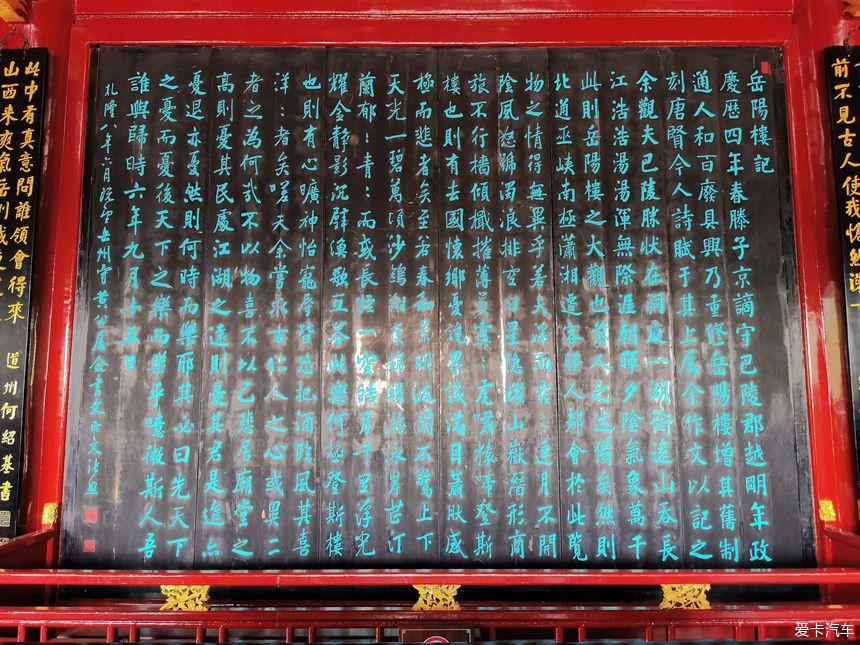 前不見古人使我愴然
岳陽樓記
慶歷四年春滕子京謫守巴陵郡越明年政
通人和百廢具興乃重修岳陽樓增其舊制
刻唐賢今人詩賦于其上屬余作文以記之
余觀夫巴陵勝狀在洞庭一湖銜遠山吞長
江浩浩湯湯渾無際涯朝暉夕陰氣象萬千
此則岳陽樓之大觀也前人之述備矣然則
北通巫峽南極瀟湘遷客騷人都會於此覽
物之情得無異乎若夫淫雨霏〻連月不開
陰風怒號濁浪排空日星隱耀山嶽潛形商
旅不行檣傾檝摧薄暮冥〻虎嘯猿啼登斯
樓也則有去國懷鄉憂讒畏譏滿目蕭肰感
極而悲者矣至若春和景明波瀾不驚上下
天光一碧萬頃沙鷗翔集錦鱗游泳岸芷汀
蘭郁〻青〻而或長煙一空皓月千里浮光
耀金靜影沉璧漁歌互答此樂何極登斯樓
也則有心曠神怡寵辱皆忘把酒臨風其喜
洋〻者矣嗟夫余嘗求古仁人之心或異二
者之為何哉不以物喜不以己悲居廟堂之
高則憂其民處江湖之遠則憂其君是進亦
憂退亦憂然則何時而樂耶其必曰先天下
之憂而憂後天下之樂而樂乎噫微斯人吾
誰與歸時六年九月十五日
乾隆八年六月 岳州守黃公屬余書 張照
此中有真意問誰領會得來
山西來爽氣岳州城
道州何紹基書
爱卡汽车